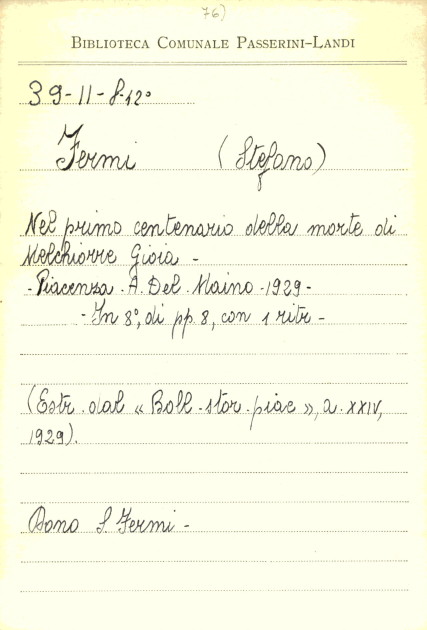 76)
BIBLIOTECA COMUNALE PASSERINI-LANDI
39-11-8-12°
Fermi (Stefano)
Nel primo centenario della morte di
Melchiorre Gioia -
- Piacenza - A. Del Maino - 1929 -
- In 8°, di pp. 8, con 1 ritr -
(Estr. dal « Boll. stor. piac », a. XXIV,
1929).
Dono S. Fermi -